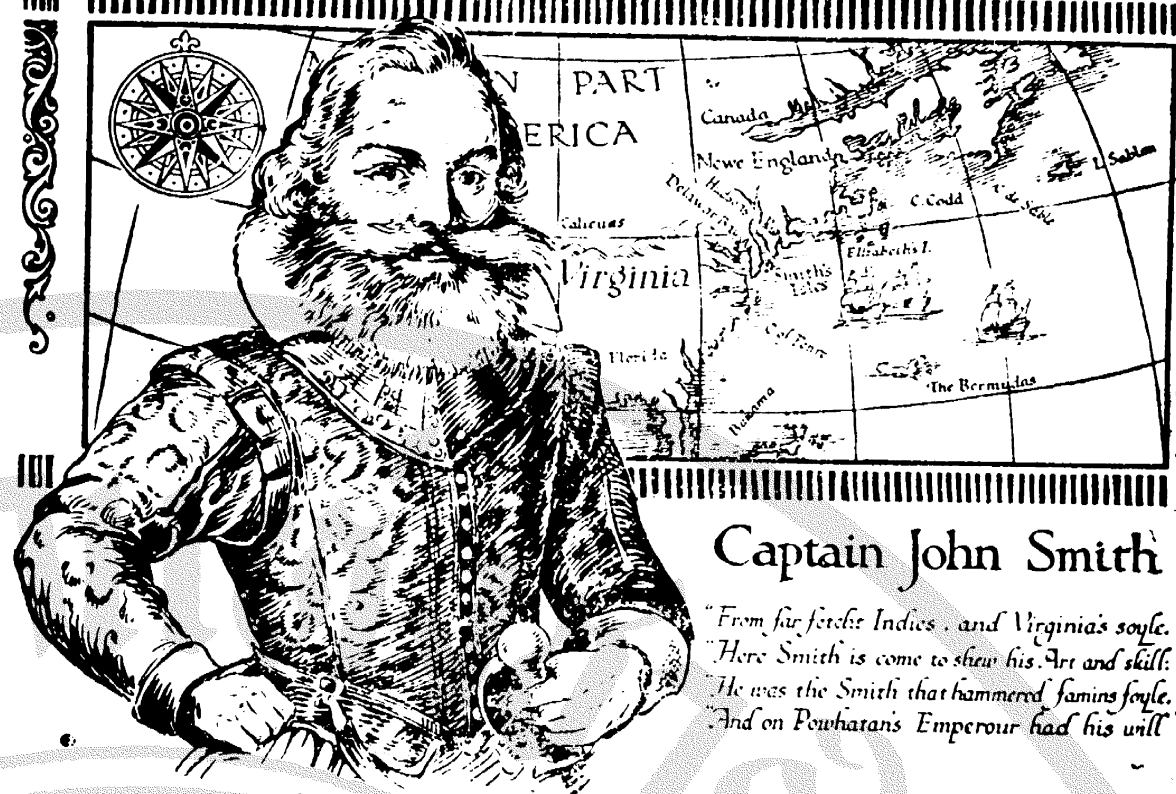 N PART
ERICA
Canada
Newe England
I. Sablon
C. Codd
Virginia
Elizabeths I.
Smith's
Isles
Florida
The Bermudas
Bahama
Captain John Smith
"From far fetcht Indies, and Virginia's soyle,
"Here Smith is come to shew his Art and skill:
"He was the Smith that hammered famins foyle,
"And on Powhatan's Emperour had his will"